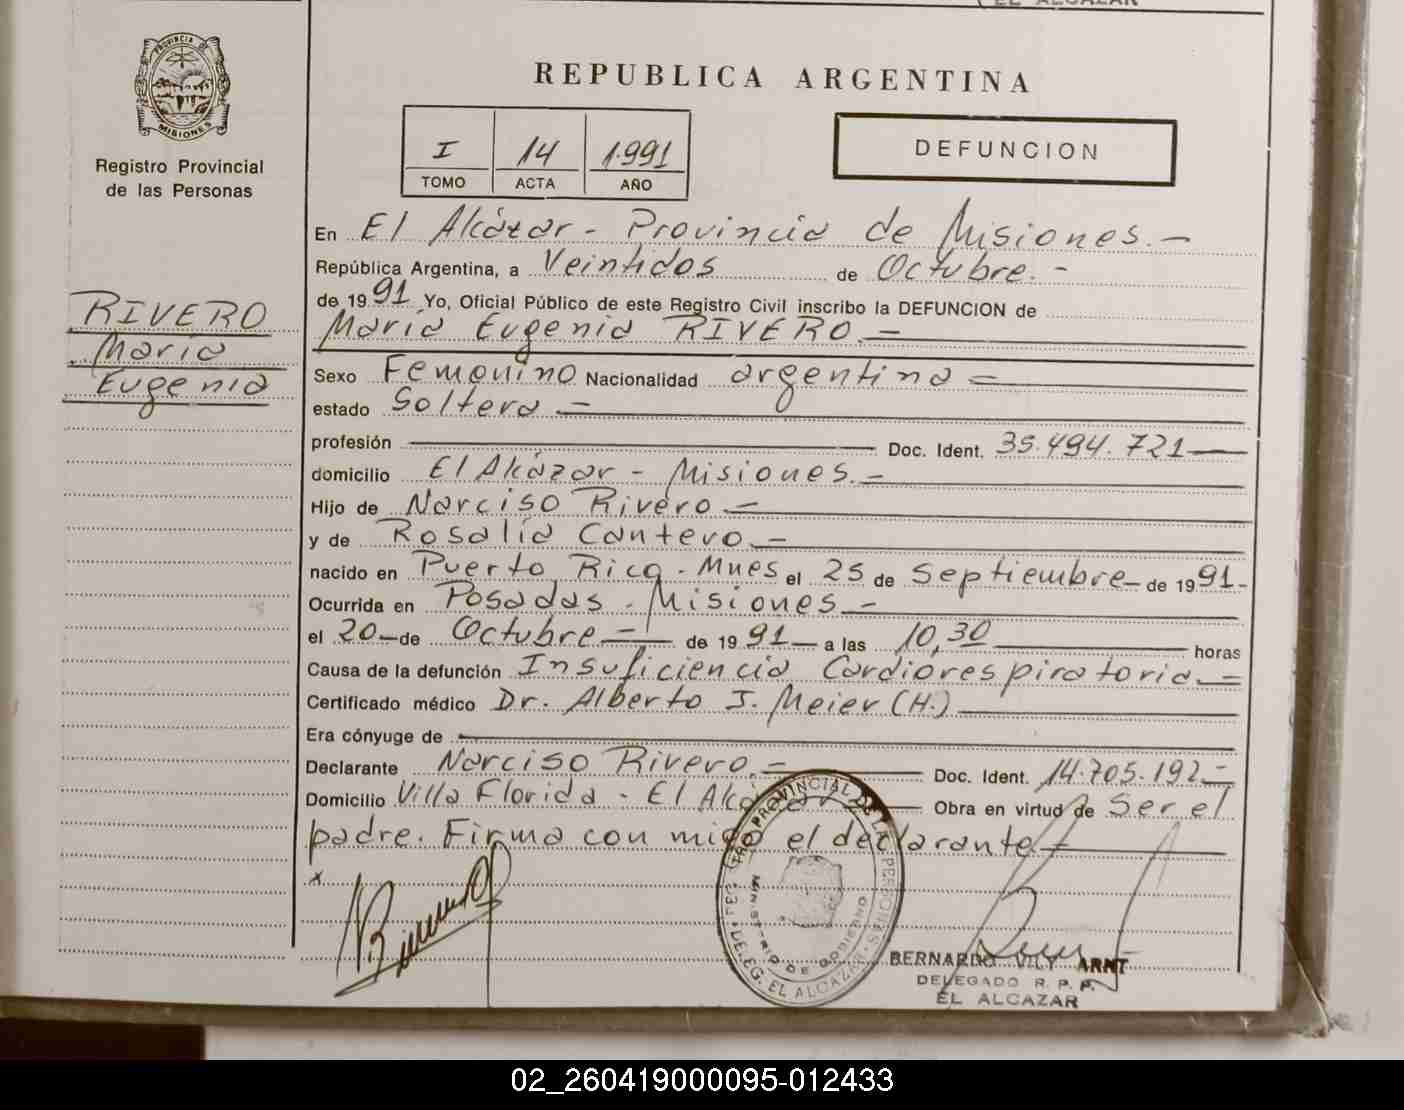 EL ALCAZAR
PROVINCIA DE
MISIONES
Registro Provincial
de las Personas
RIVERO
María
Eugenia
REPUBLICA ARGENTINA
I 14 1.991
TOMO ACTA AÑO
DEFUNCION
En El Alcázar - Provincia de Misiones.-
República Argentina, a Veintidos de Octubre.-
de 1991 Yo, Oficial Público de este Registro Civil inscribo la DEFUNCION de
María Eugenia RIVERO.-
Sexo Femenino Nacionalidad argentina-
estado Soltera-
profesión Doc. Ident. 35.494.721
domicilio El Alcázar - Misiones.-
Hijo de Narciso Rivero-
y de Rosalía Cantero.-
nacido en Puerto Rico - Mnes el 25 de Septiembre- de 1991-
Ocurrida en Posadas - Misiones.-
el 20-de Octubre- de 1991- a las 10,30 horas
Causa de la defunción Insuficiencia Cardiorespiratoria.-
Certificado médico Dr. Alberto J. Meier (H.)
Era cónyuge de
Declarante Narciso Rivero.- Doc. Ident. 14.705.192-
Domicilio Villa Florida - El Alcázar Obra en virtud de Ser el
padre. Firma con migo el declarante
x
REG. PROVINCIAL DE LAS PERSONAS
MINISTERIO DE GOBIERNO
DELEG. EL ALCAZAR
BERNARDO ARNT
DELEGADO R. P. P.
EL ALCAZAR
02_260419000095-012433